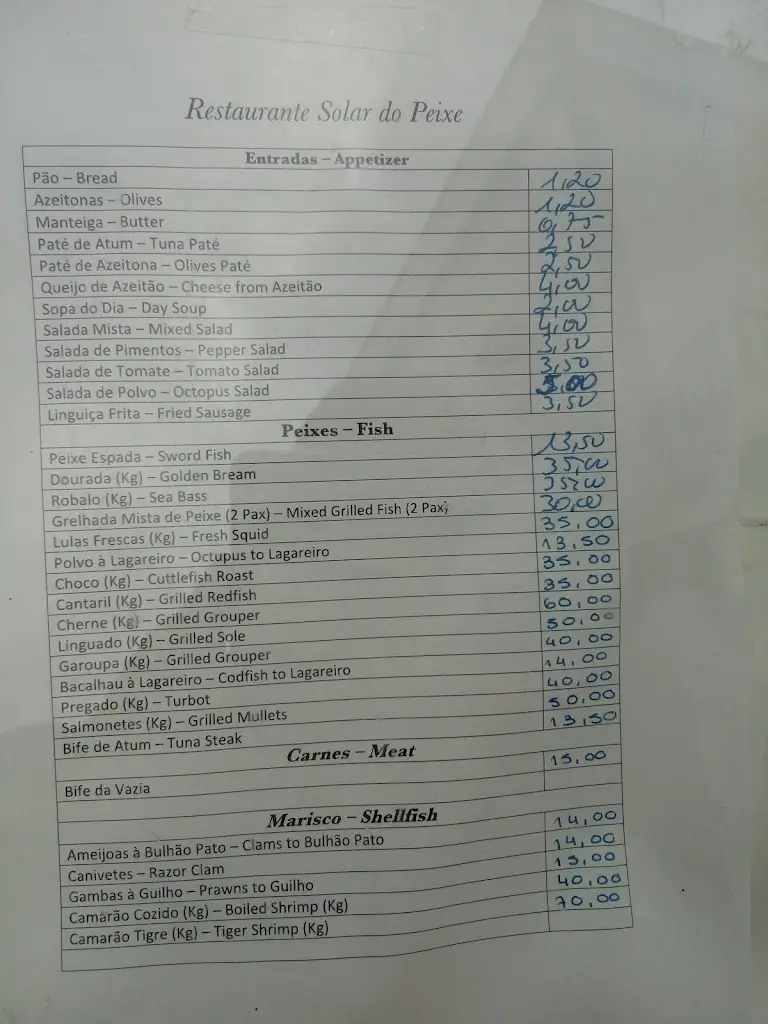 Restaurante Solar do Peixe
Entradas – Appetizer
Pão – Bread 1,20
Azeitonas – Olives 1,20
Manteiga – Butter 0,75
Paté de Atum – Tuna Paté 2,50
Paté de Azeitona – Olives Paté 2,50
Queijo de Azeitão – Cheese from Azeitão 4,00
Sopa do Dia – Day Soup 2,00
Salada Mista – Mixed Salad 4,00
Salada de Pimentos – Pepper Salad 3,50
Salada de Tomate – Tomato Salad 3,50
Salada de Polvo – Octopus Salad 5,00
Linguiça Frita – Fried Sausage 3,50
Peixes – Fish
Peixe Espada – Sword Fish 13,50
Dourada (Kg) – Golden Bream 35,00
Robalo (Kg) – Sea Bass 35,00
Grelhada Mista de Peixe (2 Pax) – Mixed Grilled Fish (2 Pax) 30,00
Lulas Frescas (Kg) – Fresh Squid 35,00
Polvo à Lagareiro – Octupus to Lagareiro 13,50
Choco (Kg) – Cuttlefish Roast 35,00
Cantaril (Kg) – Grilled Redfish 35,00
Cherne (Kg) – Grilled Grouper 60,00
Linguado (Kg) – Grilled Sole 50,00
Garoupa (Kg) – Grilled Grouper 40,00
Bacalhau à Lagareiro – Codfish to Lagareiro 14,00
Pregado (Kg) – Turbot 40,00
Salmonetes (Kg) – Grilled Mullets 50,00
Bife de Atum – Tuna Steak 13,50
Carnes – Meat
Bife da Vazia 15,00
Marisco – Shellfish
Ameijoas à Bulhão Pato – Clams to Bulhão Pato 14,00
Canivetes – Razor Clam 14,00
Gambas à Guilho – Prawns to Guilho 15,00
Camarão Cozido (Kg) – Boiled Shrimp (Kg) 40,00
Camarão Tigre (Kg) – Tiger Shrimp (Kg) 70,00